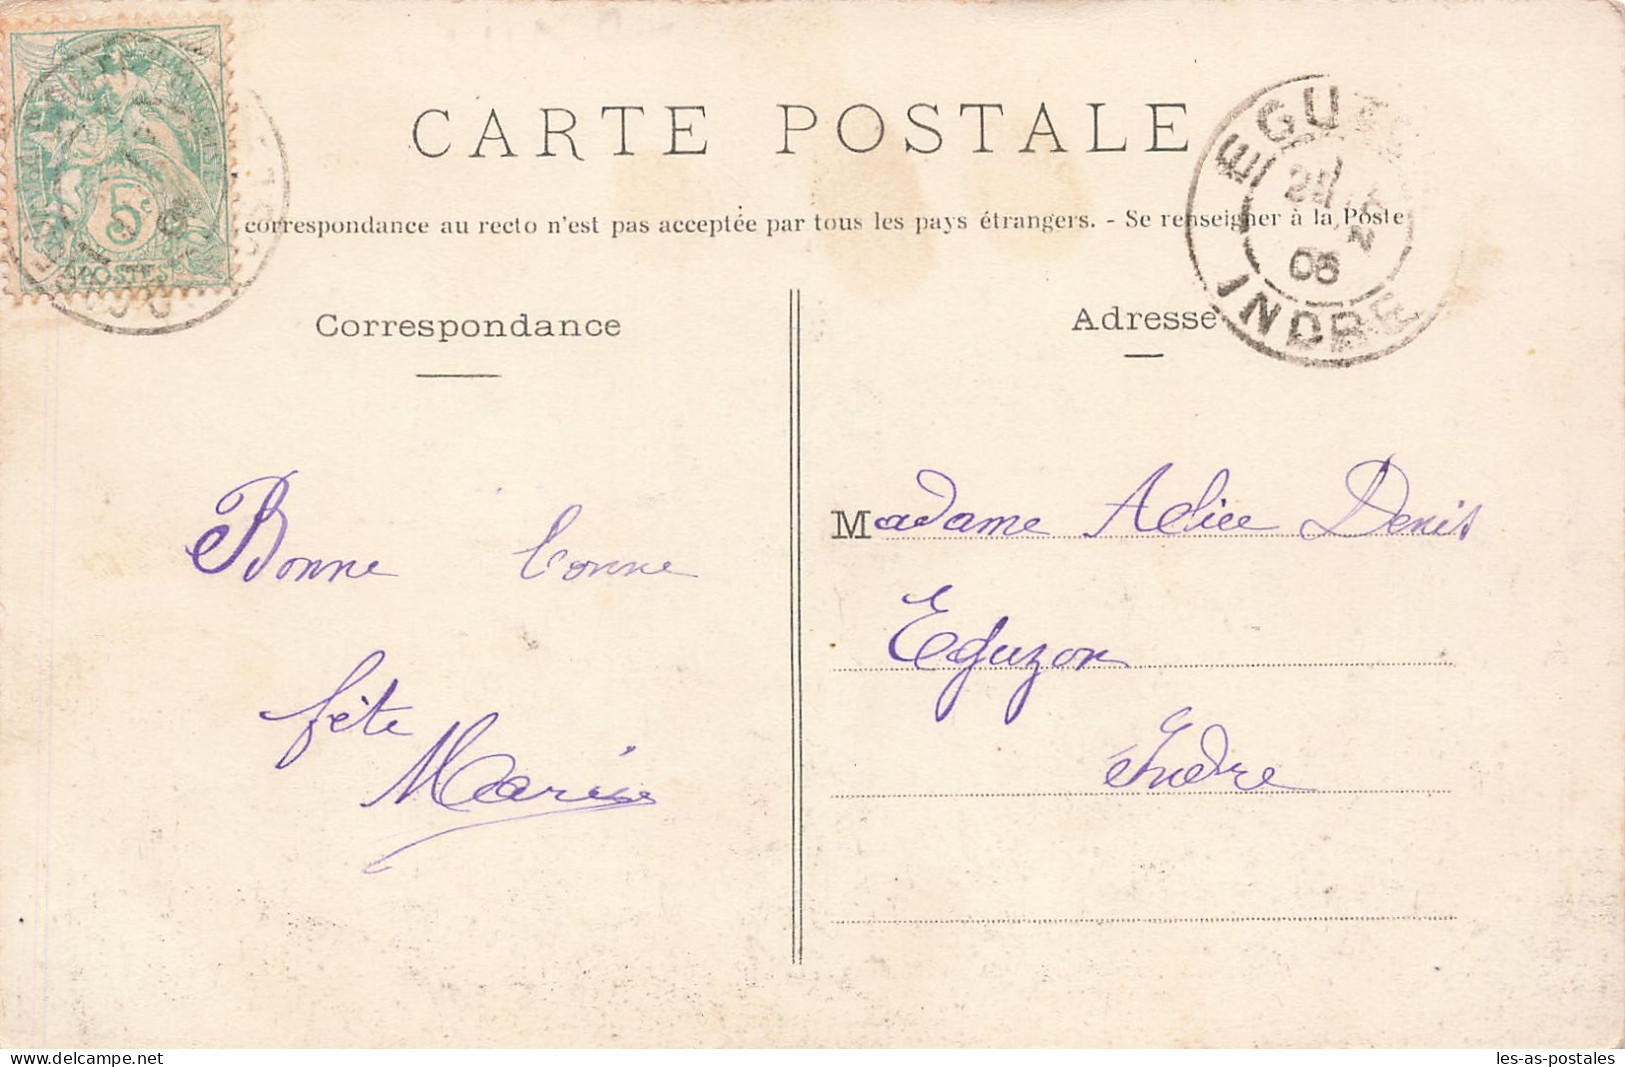 CARTE POSTALE
correspondance au recto n'est pas acceptée par tous les pays étrangers. - Se renseigner à la Poste
Correspondance
Adresse
Bonne bonne
fête
Marie
Madame Alice Denis
Eguzon
Indre
5c
POSTES
EGUZ
06
INDRE
delcampe.net
les-as-postales